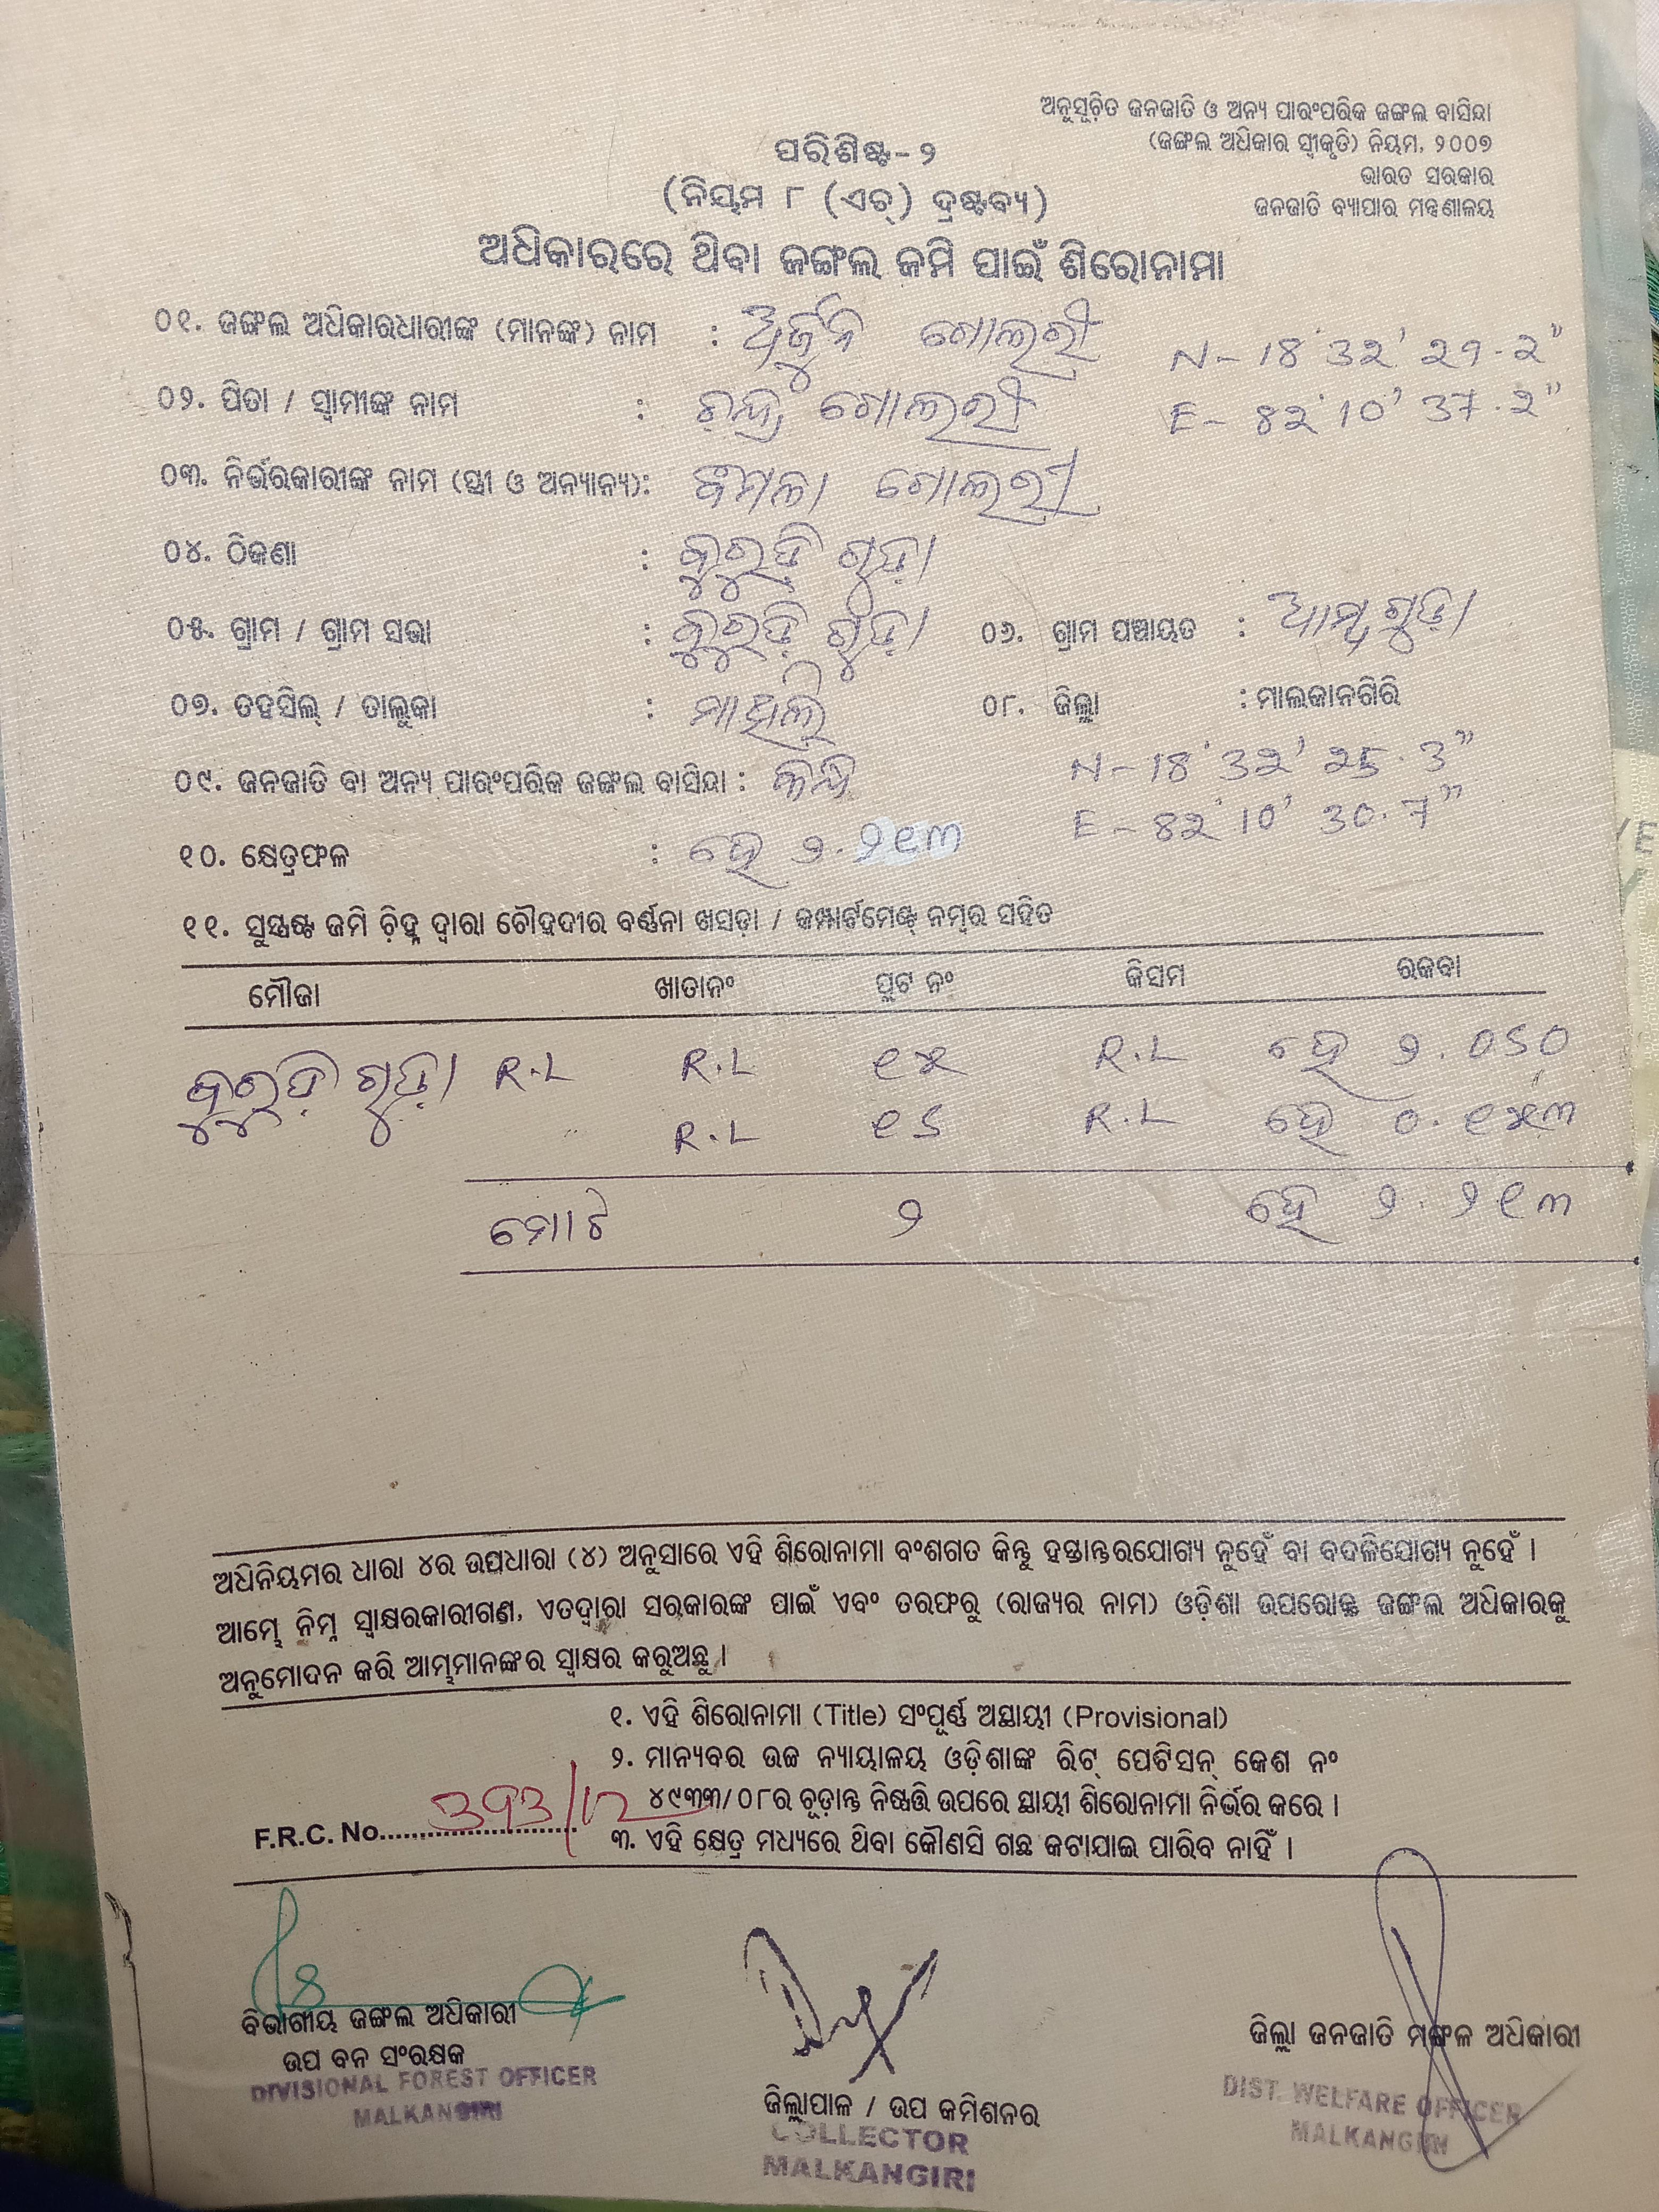 ଅନୁସୂଚିତ ଜନଜାତି ଓ ଅନ୍ୟ ପାରଂପରିକ ଜଙ୍ଗଲ ବାସିନ୍ଦା
(ଜଙ୍ଗଲ ଅଧିକାର ସ୍ୱୀକୃତି) ନିୟମ, ୨୦୦୭
ଭାରତ ସରକାର
ଜନଜାତି ବ୍ୟାପାର ମନ୍ତ୍ରଣାଳୟ
ପରିଶିଷ୍ଟ-୨
(ନିୟମ ୮ (ଏଚ୍) ଦ୍ରଷ୍ଟବ୍ୟ)
ଅଧିକାରରେ ଥିବା ଜଙ୍ଗଲ ଜମି ପାଇଁ ଶିରୋନାମା
୦୧. ଜଙ୍ଗଲ ଅଧିକାରଧାରୀଙ୍କ (ମାନଙ୍କ) ନାମ : ଅର୍ଜୁନ ଗୋଲରୀ N-18°32'29.2"
୦୨. ପିତା / ସ୍ୱାମୀଙ୍କ ନାମ : ଚନ୍ଦ୍ର ଗୋଲରୀ E-82°10'37.2"
୦୩. ନିର୍ଭରକାରୀଙ୍କ ନାମ (ସ୍ତ୍ରୀ ଓ ଅନ୍ୟାନ୍ୟ): ଗୋଲରୀ
୦୪. ଠିକଣା : କୁରୁଦି ଗୁଡ଼ା
୦୫. ଗ୍ରାମ / ଗ୍ରାମ ସଭା : କୁରୁଦି ଗୁଡ଼ା ୦୬. ଗ୍ରାମ ପଞ୍ଚାୟତ : ଆମ୍ବଗୁଡ଼ା
୦୭. ତହସିଲ୍ / ତାଲୁକା : ମାଥିଲି ୦୮. ଜିଲ୍ଲା : ମାଲକାନଗିରି
୦୯. ଜନଜାତି ବା ଅନ୍ୟ ପାରଂପରିକ ଜଙ୍ଗଲ ବାସିନ୍ଦା : N-18°32'25.3"
E-82°10'30.7"
୧୦. କ୍ଷେତ୍ରଫଳ : ହେ ୨.୨୧୩
୧୧. ସୁସ୍ପଷ୍ଟ ଜମି ଚିହ୍ନ ଦ୍ୱାରା ଚୌହଦୀର ବର୍ଣ୍ଣନା ଖସଡ଼ା / କମ୍ପାର୍ଟମେଣ୍ଟ ନମ୍ବର ସହିତ
ମୌଜା ଖାତାନଂ ପ୍ଲଟ ନଂ କିସମ ରକବା
କୁରୁଦି ଗୁଡ଼ା R.L R.L ୧୫ R.L ହେ ୨.୦୬୦
R.L ୧୬ R.L ହେ ୦.୧୫୩
ମୋଟ ୨ ହେ ୨.୨୧୩
ଅଧିନିୟମର ଧାରା ୪ର ଉପଧାରା (୪) ଅନୁସାରେ ଏହି ଶିରୋନାମା ବଂଶଗତ କିନ୍ତୁ ହସ୍ତାନ୍ତରଯୋଗ୍ୟ ନୁହେଁ ବା ବଦଳିଯୋଗ୍ୟ ନୁହେଁ ।
ଆମ୍ଭେ ନିମ୍ନ ସ୍ୱାକ୍ଷରକାରୀଗଣ, ଏତଦ୍ୱାରା ସରକାରଙ୍କ ପାଇଁ ଏବଂ ତରଫରୁ (ରାଜ୍ୟର ନାମ) ଓଡ଼ିଶା ଉପରୋକ୍ତ ଜଙ୍ଗଲ ଅଧିକାରକୁ
ଅନୁମୋଦନ କରି ଆମ୍ଭମାନଙ୍କର ସ୍ୱାକ୍ଷର କରୁଅଛୁ ।
୧. ଏହି ଶିରୋନାମା (Title) ସଂପୂର୍ଣ୍ଣ ଅସ୍ଥାୟୀ (Provisional)
୨. ମାନ୍ୟବର ଉଚ୍ଚ ନ୍ୟାୟାଳୟ ଓଡ଼ିଶାଙ୍କ ରିଟ୍ ପେଟିସନ୍ କେଶ ନଂ
୪୯୩୩/୦୮ର ଚୂଡ଼ାନ୍ତ ନିଷ୍ପତ୍ତି ଉପରେ ସ୍ଥାୟୀ ଶିରୋନାମା ନିର୍ଭର କରେ ।
F.R.C. No. 393/12
୩. ଏହି କ୍ଷେତ୍ର ମଧ୍ୟରେ ଥିବା କୌଣସି ଗଛ କଟାଯାଇ ପାରିବ ନାହିଁ ।
ବିଭାଗୀୟ ଜଙ୍ଗଲ ଅଧିକାରୀ
ଉପ ବନ ସଂରକ୍ଷକ
DIVISIONAL FOREST OFFICER
MALKANGIRI
ଜିଲ୍ଲାପାଳ / ଉପ କମିଶନର
COLLECTOR
MALKANGIRI
ଜିଲ୍ଲା ଜନଜାତି ମଙ୍ଗଳ ଅଧିକାରୀ
DIST. WELFARE OFFICER
MALKANGIRI